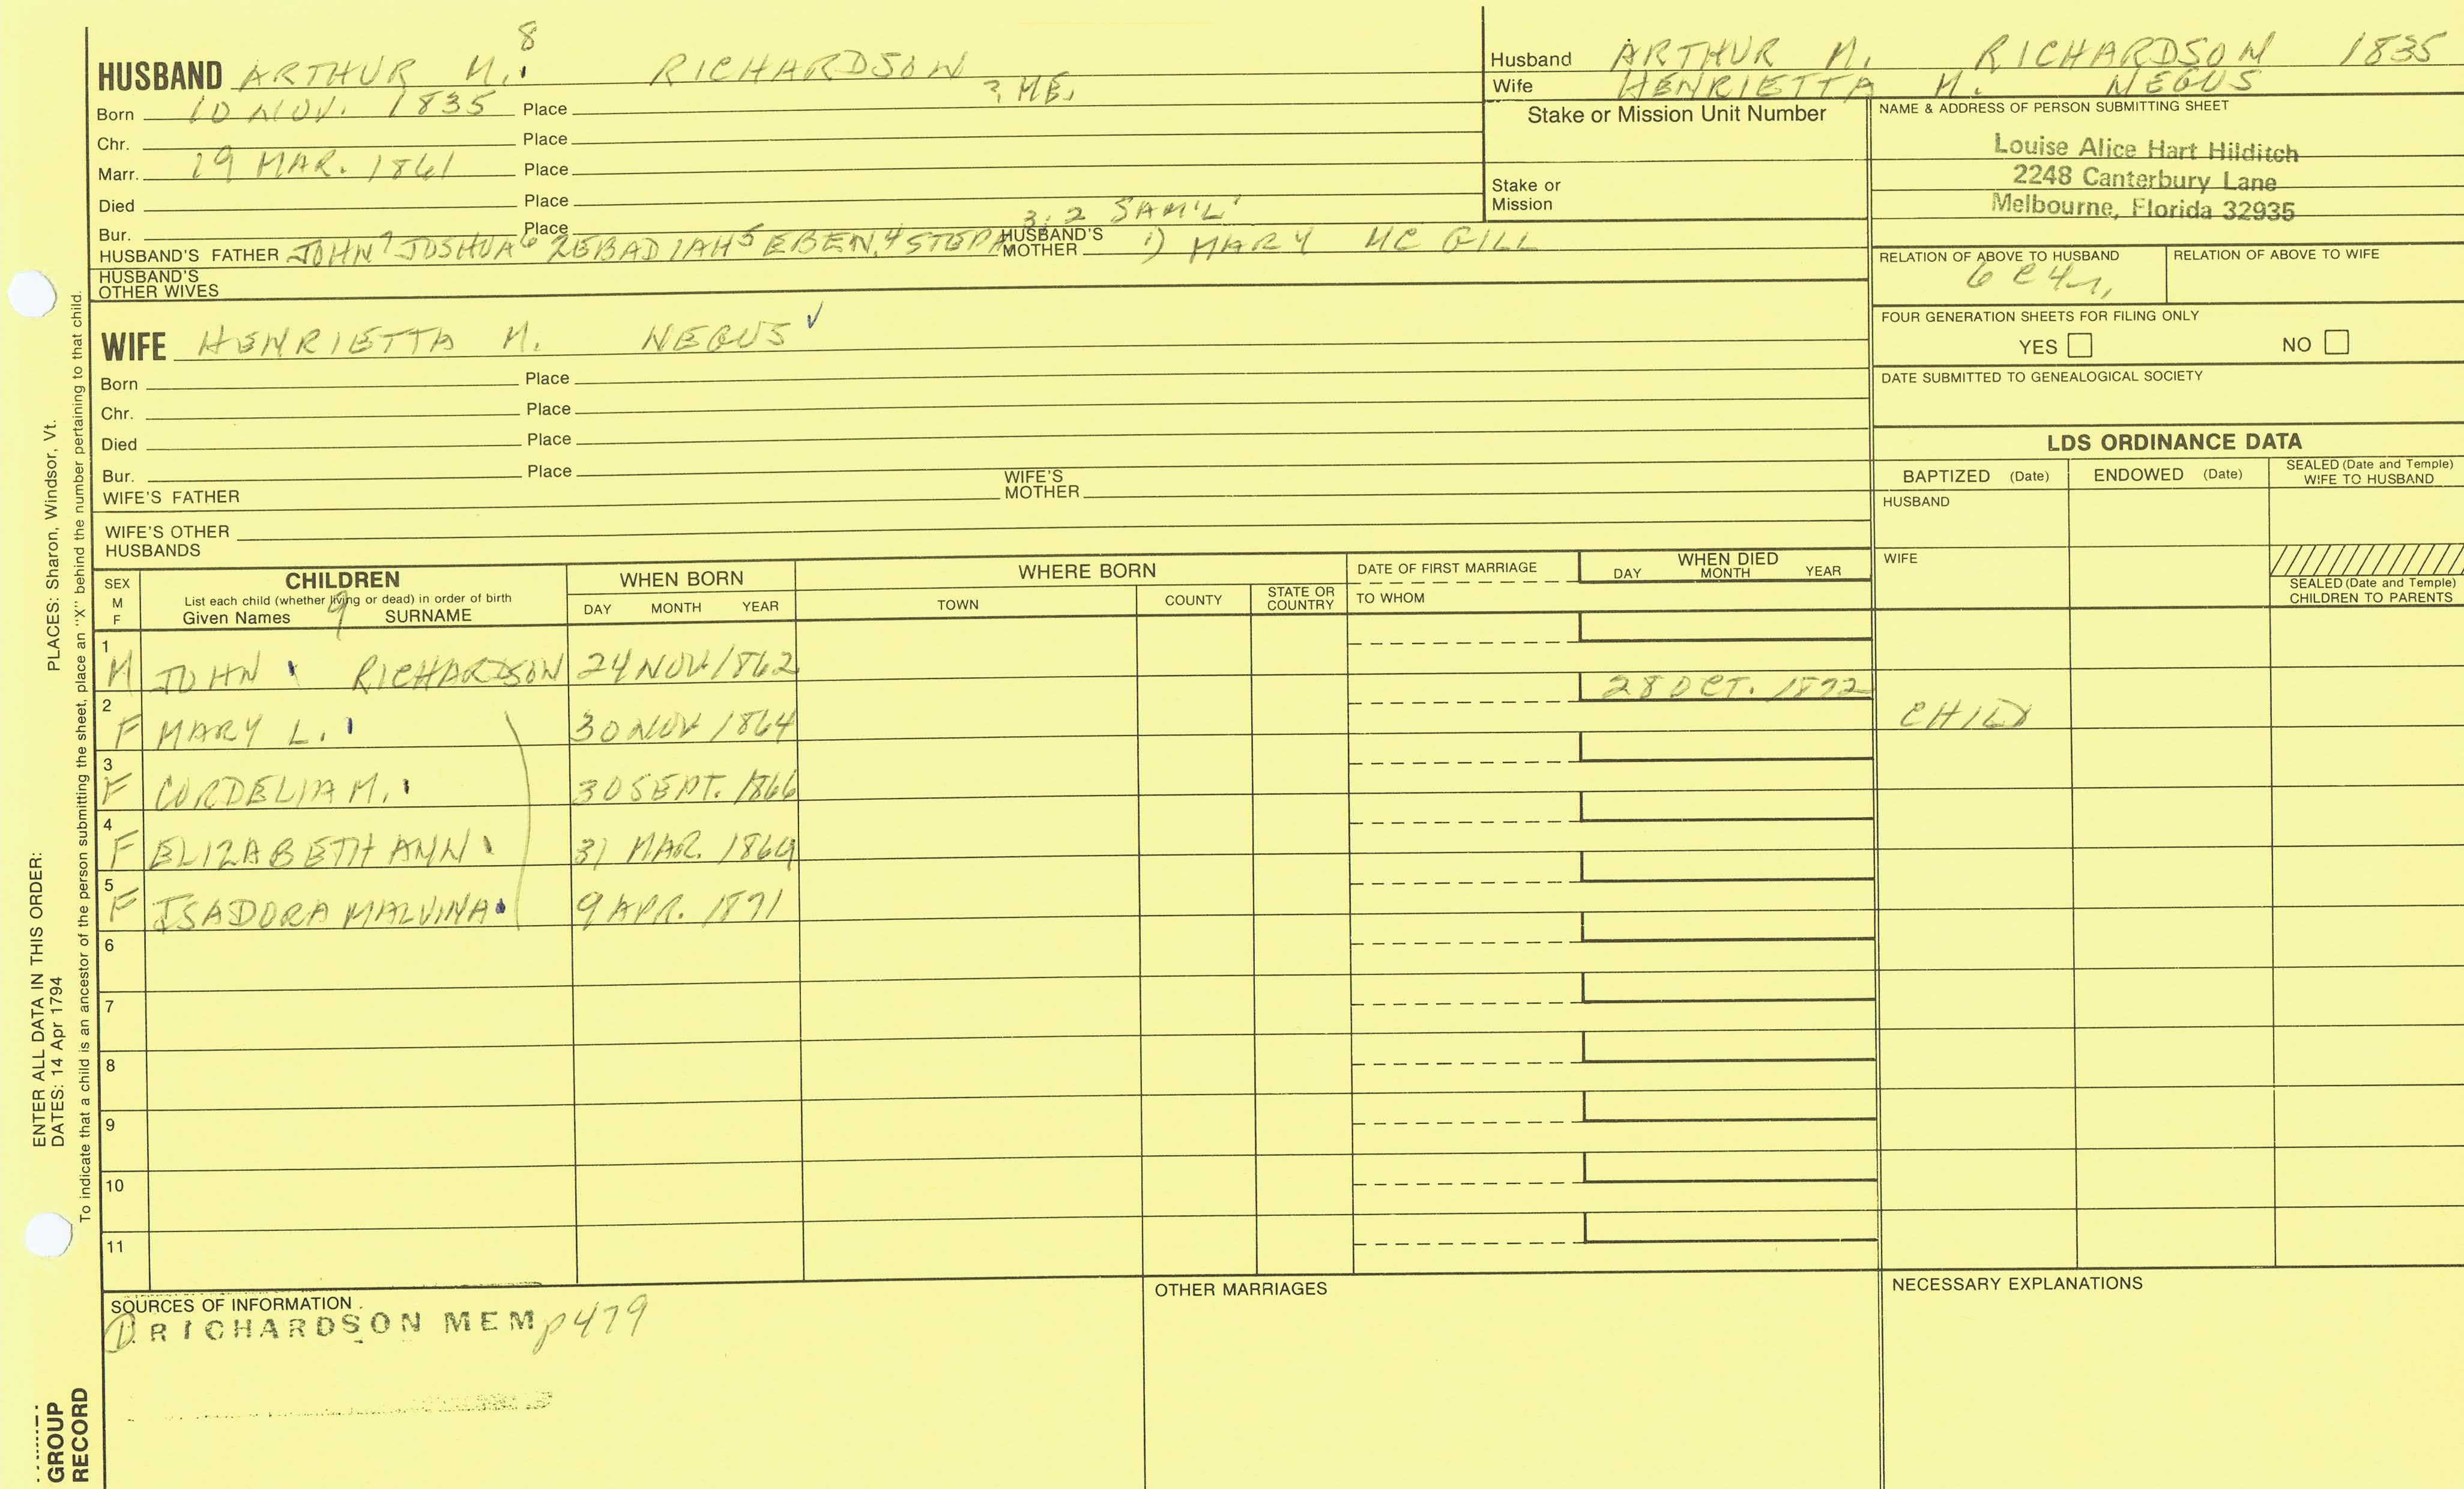 HUSBAND ARTHUR M. 8 RICHARDSON
Born 10 NOV. 1835 Place ? ME.
Chr. Place
Marr. 19 MAR. 1861 Place
Died Place
Bur. Place
HUSBAND'S FATHER JOHN 7 JOSHUA 6 ZEBADIAH 5 EBEN. 4 STEPH 3, 2 SAM'L 1 HUSBAND'S MOTHER 1) MARY MC GILL
HUSBAND'S OTHER WIVES
WIFE HENRIETTA M. NEGUS ✓
Born Place
Chr. Place
Died Place
Bur. Place
WIFE'S FATHER WIFE'S MOTHER
WIFE'S OTHER HUSBANDS
Husband ARTHUR M. RICHARDSON 1835
Wife HENRIETTA M. NEGUS
Stake or Mission Unit Number
Stake or Mission
NAME & ADDRESS OF PERSON SUBMITTING SHEET
Louise Alice Hart Hilditch
2248 Canterbury Lane
Melbourne, Florida 32935
RELATION OF ABOVE TO HUSBAND RELATION OF ABOVE TO WIFE
FOUR GENERATION SHEETS FOR FILING ONLY
YES NO
DATE SUBMITTED TO GENEALOGICAL SOCIETY
LDS ORDINANCE DATA
BAPTIZED (Date) ENDOWED (Date) SEALED (Date and Temple) WIFE TO HUSBAND
HUSBAND
WIFE
SEALED (Date and Temple) CHILDREN TO PARENTS
SEX M F
CHILDREN
List each child (whether living or dead) in order of birth
Given Names 9 SURNAME
WHEN BORN
DAY MONTH YEAR
WHERE BORN
TOWN COUNTY STATE OR COUNTRY
DATE OF FIRST MARRIAGE
TO WHOM
WHEN DIED
DAY MONTH YEAR
1 M JOHN RICHARDSON 24 NOV 1862
2 F MARY L. 30 NOV 1864 28 OCT. 1872 CHILD
3 F CORDELIA M. 30 SEPT. 1866
4 F ELIZABETH ANN 31 MAR. 1869
5 F ISADORA MALVINA 9 APR. 1871
6
7
8
9
10
11
SOURCES OF INFORMATION
1) RICHARDSON MEM p479
OTHER MARRIAGES
NECESSARY EXPLANATIONS
ENTER ALL DATA IN THIS ORDER:
DATES: 14 Apr 1794 PLACES: Sharon, Windsor, Vt.
To indicate that a child is an ancestor of the person submitting the sheet, place an "X" behind the number pertaining to that child.
GROUP
RECORD